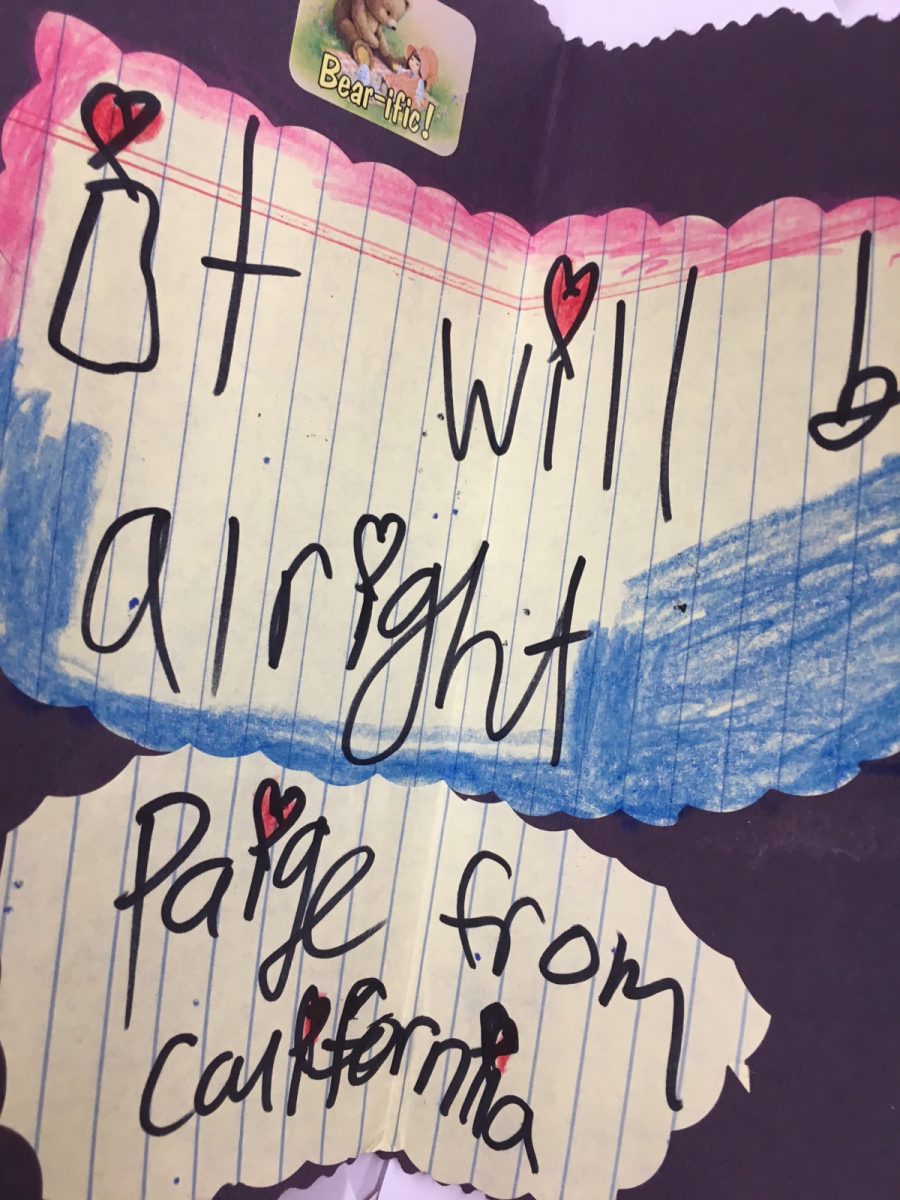 Bear-ific!
it will b
alright
Paige from
California